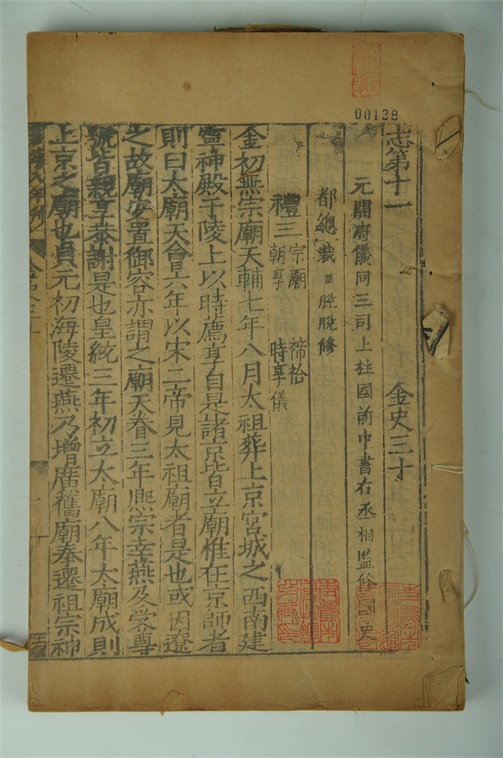 00138
志第十一　金史三十
元開府儀同三司上柱國前中書右丞相監修國史
都總裁臣脫脫修
禮三　宗廟　禘祫
朝享　時享儀
金初無宗廟天輔七年八月太祖葬上京宮城之西南建
寧神殿于陵上以時薦享自是諸京皆立廟惟在京師者
則曰太廟天會六年以宋二帝見太祖廟者是也或因遼
之故廟安置御容亦謂之廟天眷三年熙宗幸燕乃受尊
號皆親享恭謝是也皇統三年初立太廟八年太廟成則
上京之廟也貞元初海陵遷燕乃增廣舊廟奉遷祖宗神